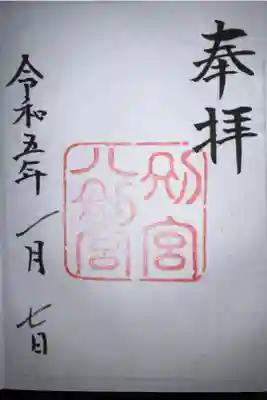 奉拝
別宮
八剣宮
令和五年 一月 七日